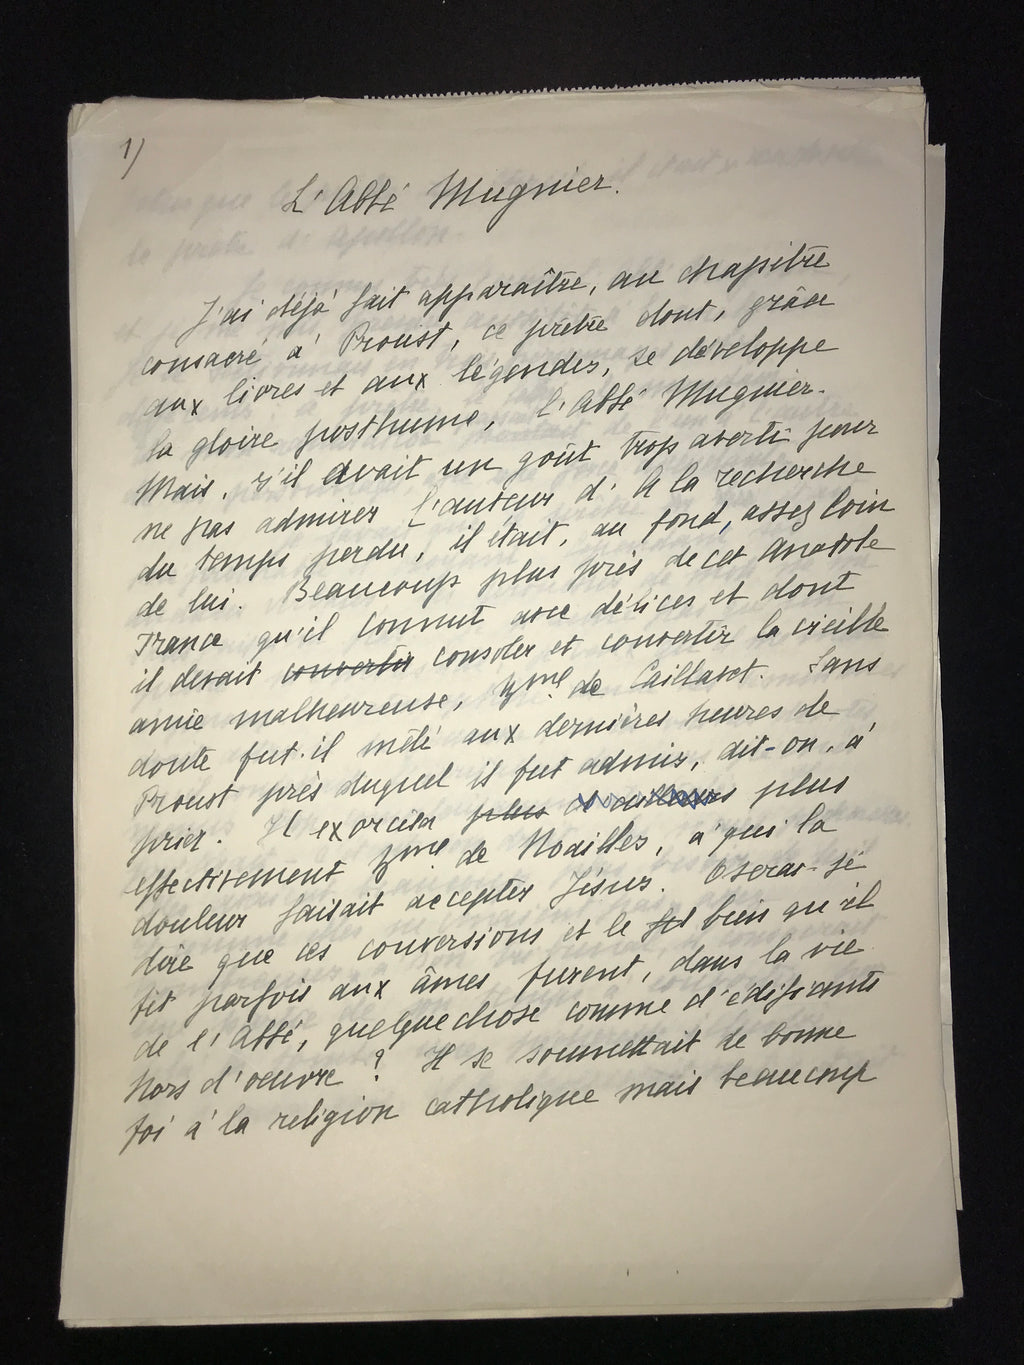 1)
L'Abbé Mugnier.
J'ai déjà fait apparaître, au chapitre
consacré à Proust, ce prêtre dont, grâce
aux livres et aux légendes, se développe
la gloire posthume, l'Abbé Mugnier.
Mais, s'il avait un goût trop averti pour
ne pas admirer l'auteur d' A la recherche
du temps perdu, il était, au fond, assez loin
de lui. Beaucoup plus près de cet Anatole
France qu'il connut avec délices et dont
il devait convertir consoler et convertir la vieille
amie malheureuse, Mme de Caillavet. Sans
doute fut-il mêlé aux dernières heures de
Proust près duquel il fut admis, dit-on, à
prier. Il exorcisa plus plus
effectivement Mme de Noailles, à qui la
douleur faisait accepter Jésus. Oserai-je
dire que ces conversions et le bien qu'il
fit parfois aux âmes furent, dans la vie
de l'Abbé, quelque chose comme d'édifiants
hors d'oeuvre ? Il se soumettait de bonne
foi à la religion catholique mais beaucoup